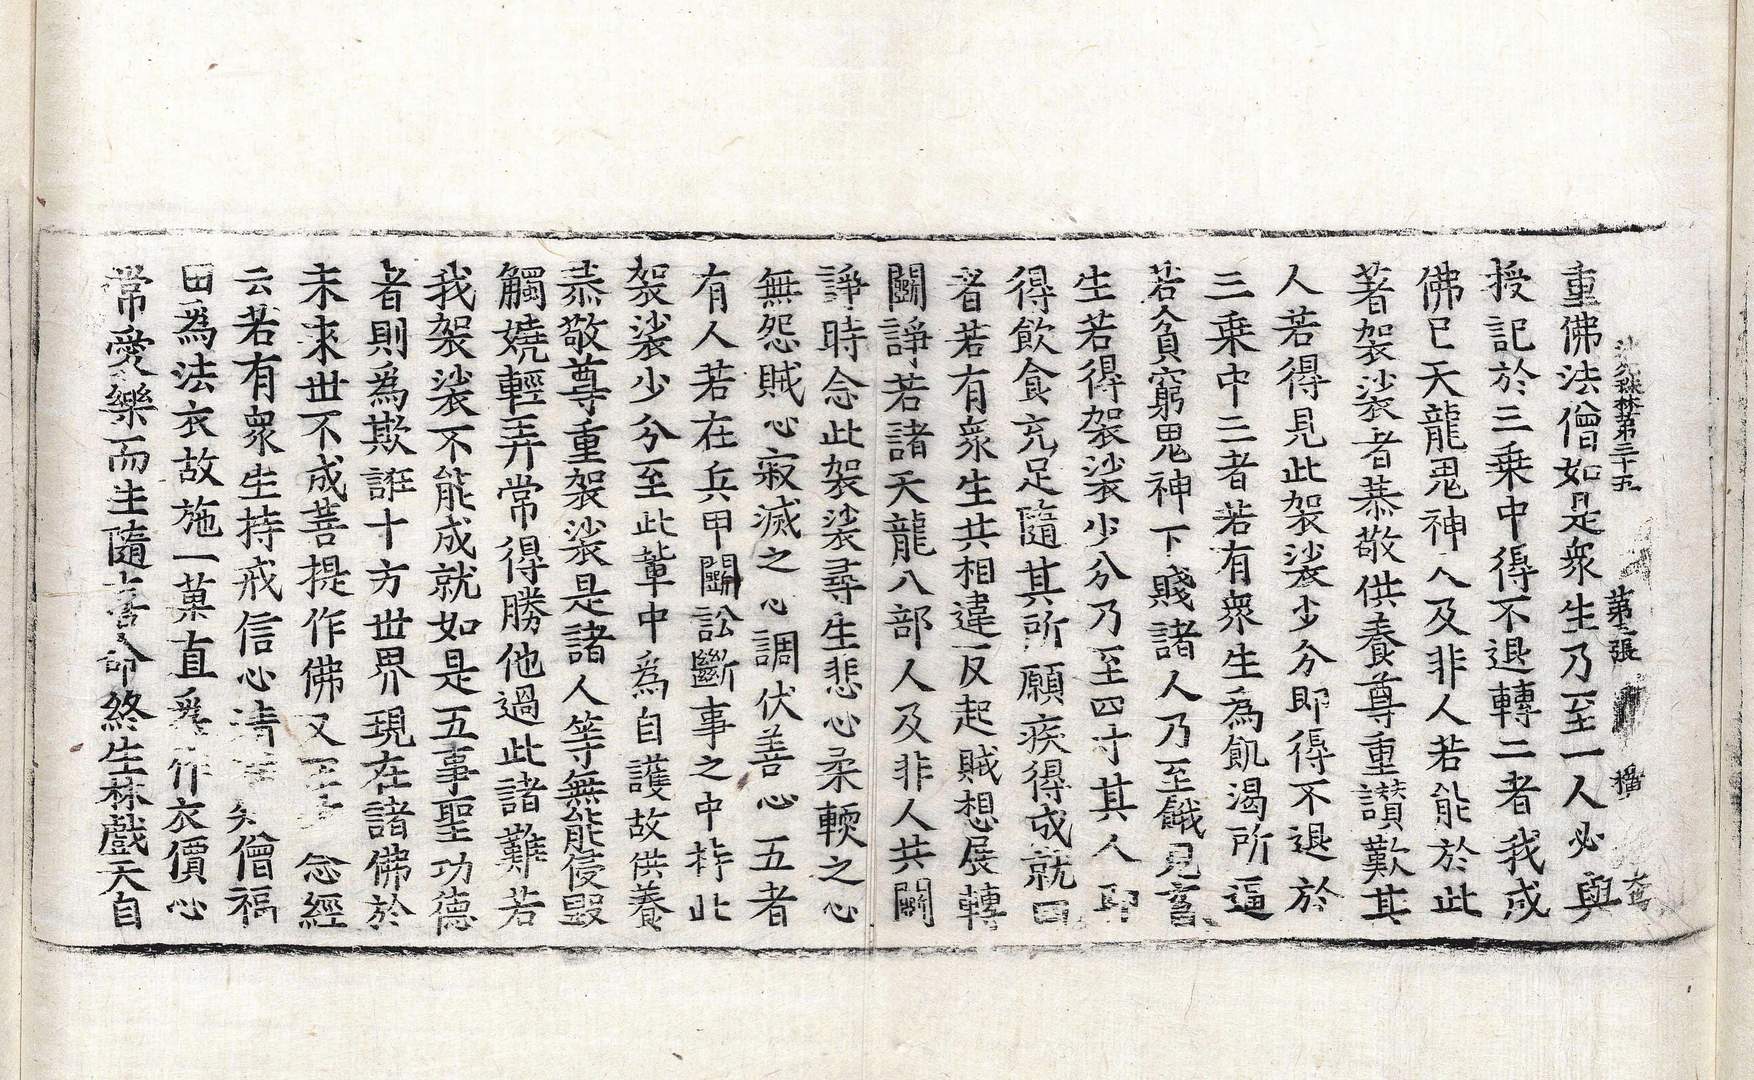 法苑珠林第三十五 第二張 橫
重佛法僧如是衆生乃至一人必與
授記於三乗中得不退轉二者我成
佛已天龍鬼神人及非人若能於此
著袈裟者恭敬供養尊重讃歎其
人若得見此袈裟少分即得不退於
三乗中三者若有衆生為飢渴所逼
若貪窮鬼神下賤諸人乃至餓鬼畜
生若得袈裟少分乃至四寸其人即
得飲食充足隨其所願疾得成就四
者若有衆生共相違反起賊想展轉
鬭諍若諸天龍八部人及非人共鬭
諍時念此袈裟尋生悲心柔軟之心
無怨賊心寂滅之心調伏善心五者
有人若在兵甲鬭訟斷事之中持此
袈裟少分至此軰中為自護故供養
恭敬尊重袈裟是諸人等無能侵毀
觸嬈輕弄常得勝他過此諸難若
我袈裟不能成就如是五事聖功德
者則為欺誑十方世界現在諸佛於
未來世不成菩提作佛又 念經
云若有衆生持戒信心清 僧福
田爲法衣故施一菓直 作衣價心
常愛樂而生隨喜命終生林戲天自